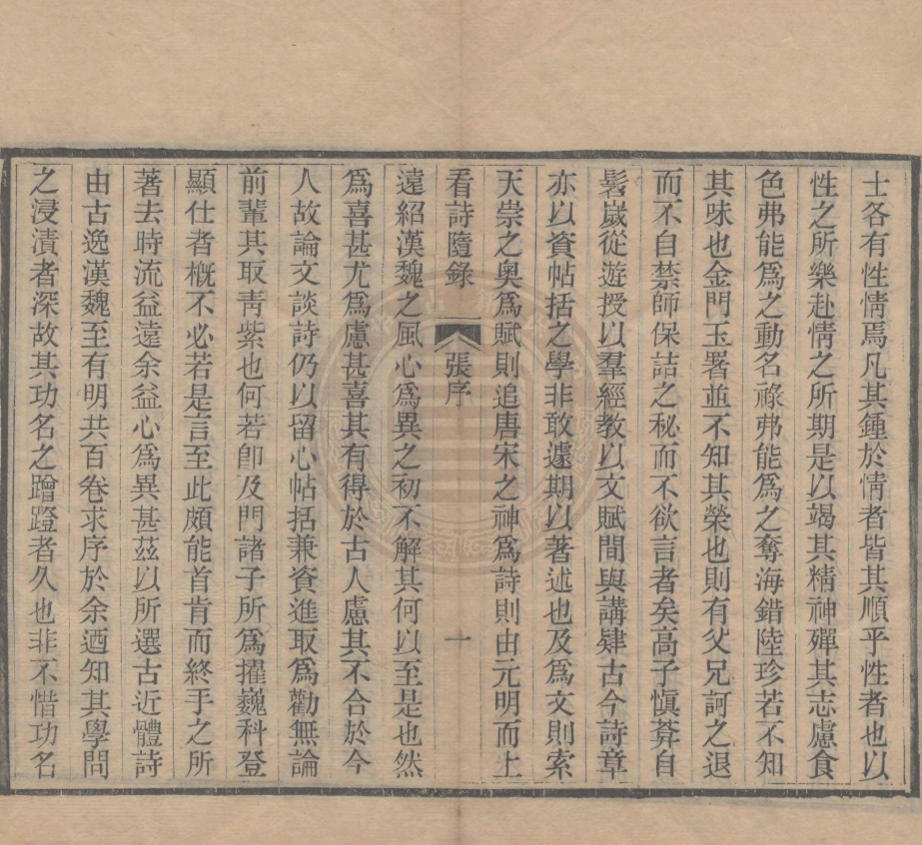 士各有性情焉凡其鍾於情者皆其順乎性者也以
性之所樂赴情之所期是以竭其精神殫其志慮食
色弗能爲之動名祿弗能爲之奪海錯陸珍若不知
其味也金門玉署並不知其榮也則有父兄訶之退
而不自禁師保詰之秘而不欲言者矣高子愼莽自
髫歲從遊授以羣經教以文賦間與講肄古今詩章
亦以資帖括之學非敢遽期以著述也及爲文則索
天崇之奧爲賦則追唐宋之神爲詩則由元明而上
看詩隨錄 張序 一
遠紹漢魏之風心爲異之初不解其何以至是也然
爲喜甚尤爲慮甚喜其有得於古人慮其不合於今
人故論文談詩仍以留心帖括兼資進取爲勸無論
前輩其取靑紫也何若卽及門諸子所爲擢巍科登
顯仕者槪不必若是言至此頗能首肯而終手之所
著去時流益遠余益心爲異甚茲以所選古近體詩
由古逸漢魏至有明共百卷求序於余迺知其學問
之浸漬者深故其功名之蹭蹬者久也非不惜功名